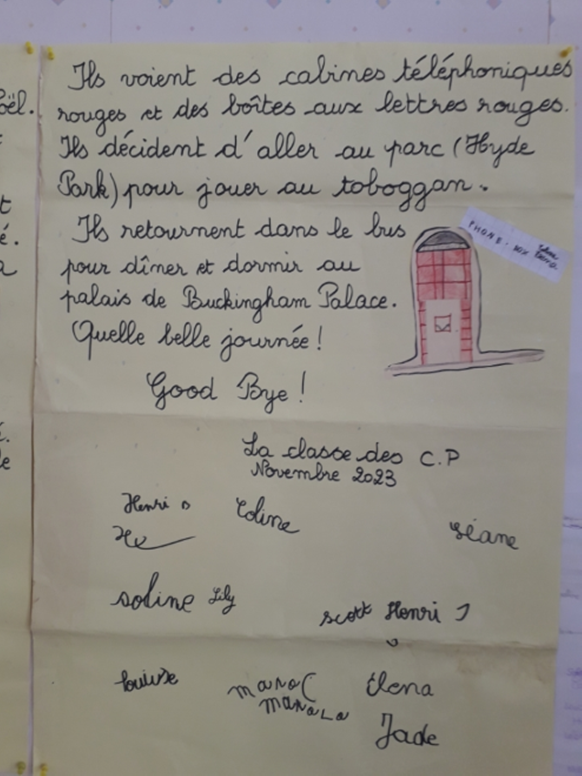 oël.
Ils voient des cabines téléphoniques
rouges et des boîtes aux lettres rouges.
Ils décident d'aller au parc (Hyde
Park) pour jouer au toboggan.
Ils retournent dans le bus
pour dîner et dormir au
palais de Buckingham Palace.
Quelle belle journée!
PHONE-BOX
Good Bye!
La classe des C.P
Novembre 2023
Henri D
He
Séane
Soline Lily
Scott Henri J
Louise
Elena
Jade